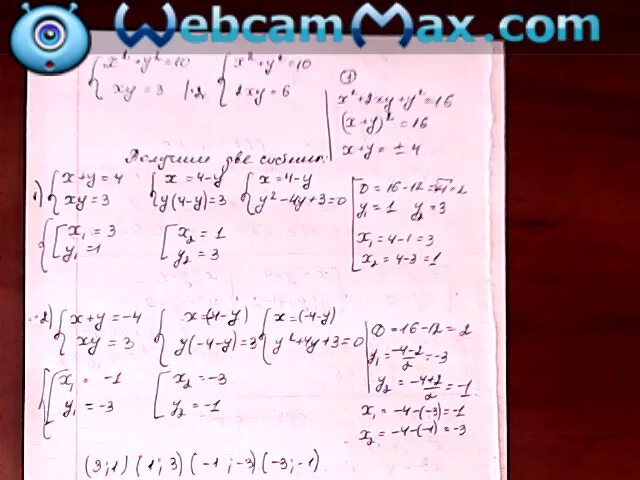 WebcamMax.com
{x²+y²=10 {x²+y²=10
xy=3 |·2 2xy=6
x²+2xy+y²=16
(x+y)²=16
x+y=±4
Получим две
1) {x+y=4 {x=4-y {x=4-y
xy=3 y(4-y)=3 y²-4y+3=0
D=16-12=√4=2
y₁=1 y₂=3
x₁=4-1=3
x₂=4-3=1
{[x₁=3 [x₂=1
y₁=1 y₂=3
2) {x+y=-4 {x=(-4-y) {x=(-4-y)
xy=3 y(-4-y)=3 y²+4y+3=0
D=16-12=2
y₁=-4-2/2=-3
y₂=-4+2/2=-1
x₁=-4-(-3)=-1
x₂=-4-(-1)=-3
{[x₁=-1 [x₂=-3
y₁=-3 y₂=-1
(3;1) (1;3) (-1;-3) (-3;-1)